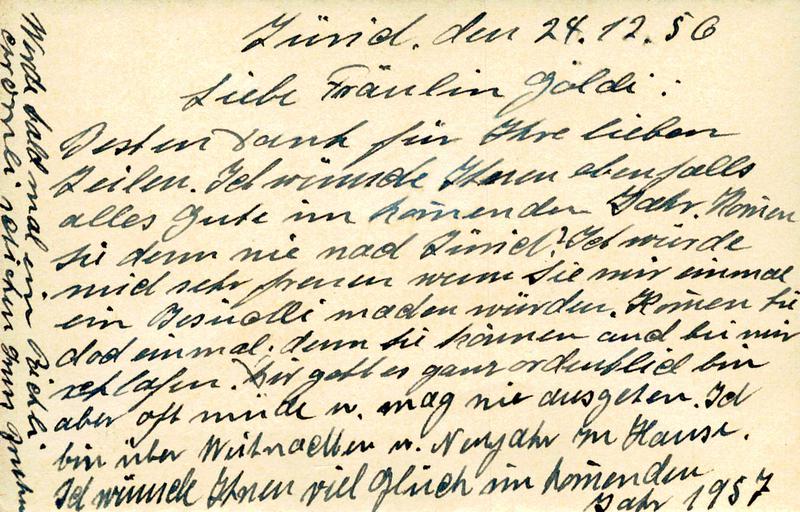 Zürich, den 24.12.56
Liebe Fräulin Göldi:
Besten Dank für Ihre lieben
Zeilen. Ich wünsche Ihnen ebenfalls
alles Gute im kom̄enden Jahr. Kom̄en
sie denn nie nach Zürich? Ich würde
mich sehr freuen wenn Sie mir einmal
ein Besuchli machen würden. Kom̄en Sie
doch einmal, denn sie können auch bei mir
schlafen. geht es ganz ordentlich bin
aber oft müde u. mag nie ausgehen. Ich
bin über Weihnachten u. Neujahr zu Hause.
Ich wünsche Ihnen viel Glück im kom̄enden
Jahr 1957
Werde bald mal ein